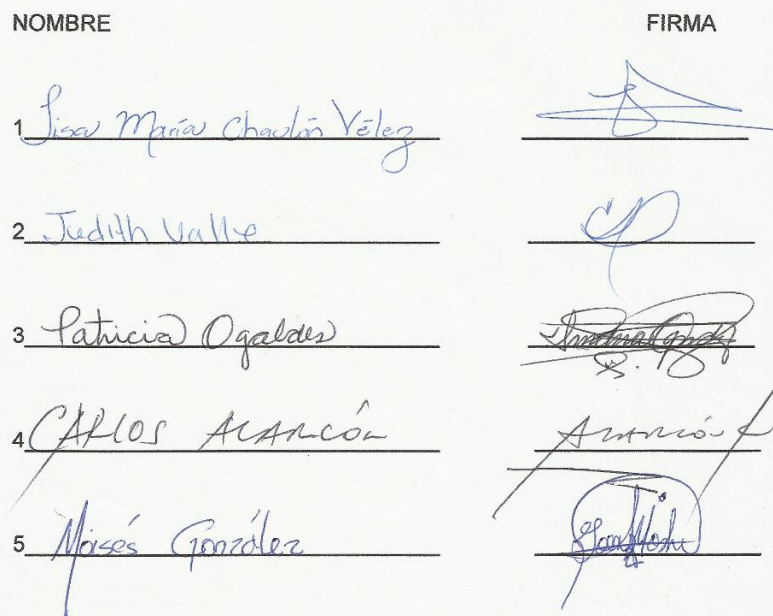 NOMBRE FIRMA
1 Lisa María Chaulón Vélez
2 Judith Valle
3 Patricia Ogaldes
4 CARLOS ALARCÓN ALARCÓN
5 Moisés González